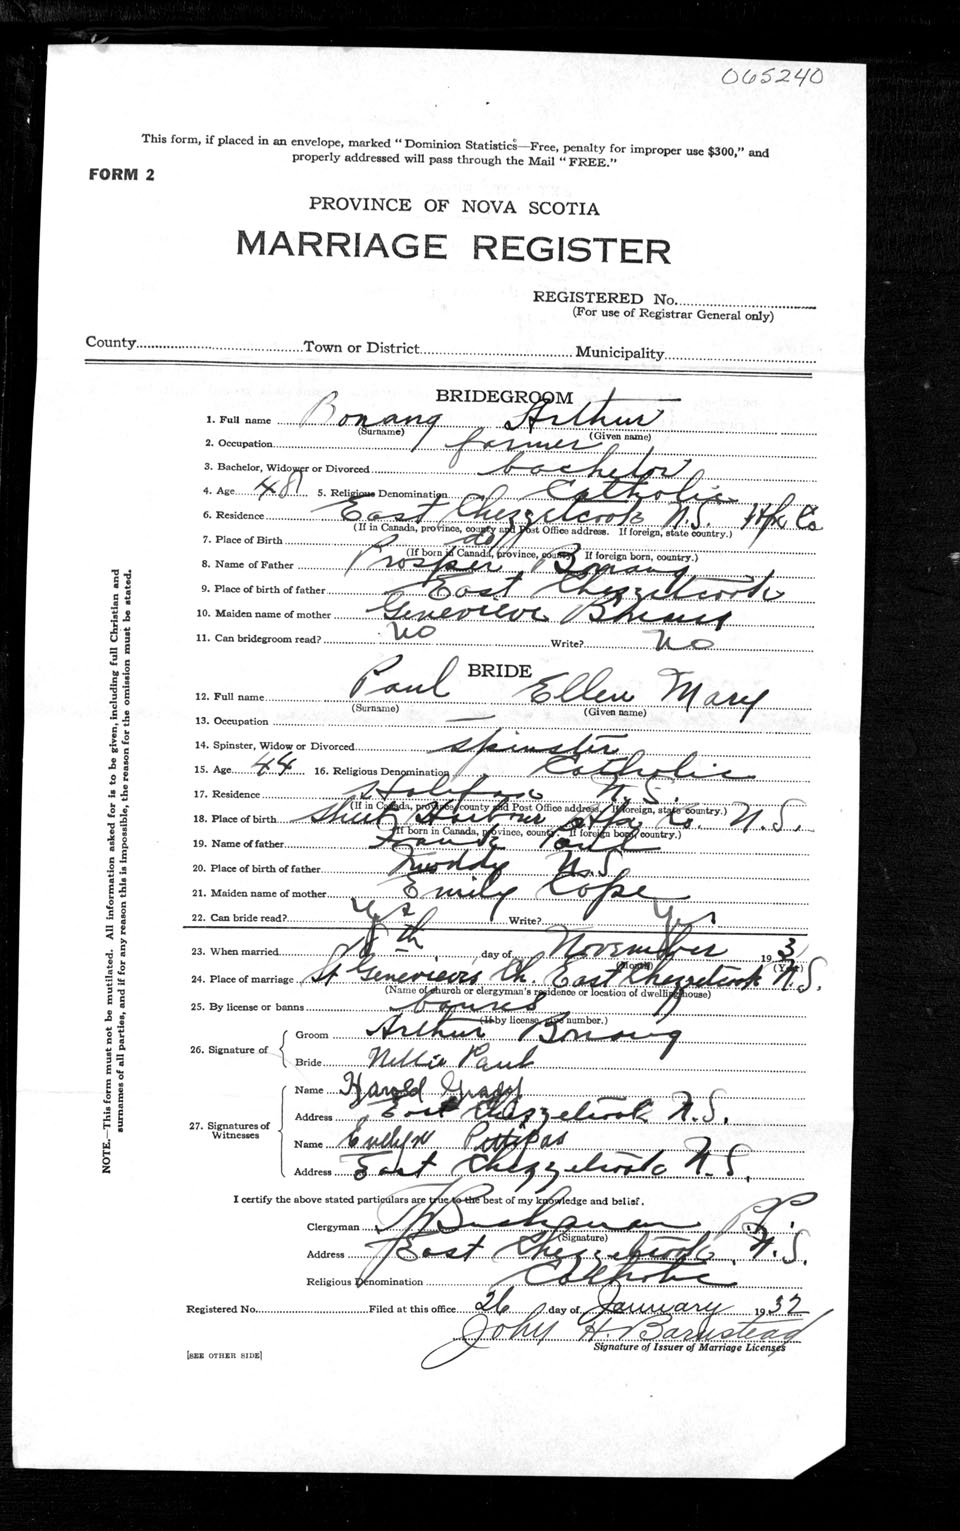 065240
This form, if placed in an envelope, marked "Dominion Statistics—Free, penalty for improper use $300," and
properly addressed will pass through the Mail "FREE."
FORM 2
PROVINCE OF NOVA SCOTIA
MARRIAGE REGISTER
REGISTERED No.
(For use of Registrar General only)
County Town or District Municipality
BRIDEGROOM
1. Full name Bonang Arthur
(Surname) (Given name)
2. Occupation farmer
3. Bachelor, Widower or Divorced bachelor
4. Age 48 5. Religious Denomination Catholic
6. Residence East Chezzetcook N.S. Hfx Co
(If in Canada, province, county and Post Office address. If foreign, state country.)
7. Place of Birth do
(If born in Canada, province, county. If foreign born, country.)
8. Name of Father Prosper Bonang
9. Place of birth of father East Chezzetcook
10. Maiden name of mother Genevieve
11. Can bridegroom read? no Write? no
BRIDE
12. Full name Paul Ellen Mary
(Surname) (Given name)
13. Occupation —
14. Spinster, Widow or Divorced spinster
15. Age 44 16. Religious Denomination Catholic
17. Residence Halifax N.S.
(If in Canada, province, county and Post Office address. If foreign, state country.)
18. Place of birth Sheet Harbour Hfx Co. N.S.
(If born in Canada, province, county. If foreign born, country.)
19. Name of father Frank Paul
20. Place of birth of father N.S
21. Maiden name of mother Emily Cope
22. Can bride read? Yes Write? Yes
23. When married 18th day of November 193
(Month) (Year)
24. Place of marriage St Genevieves Ch. East Chezzetcook N.S.
(Name of church or clergyman's residence or location of dwelling house)
25. By license or banns banns
(If by license, give number.)
26. Signature of
Groom Arthur Bonang
Bride Nellie Paul
27. Signatures of Witnesses
Name Harold
Address East Chezzetcook N.S.
Name Evelyn Pettipas
Address East Chezzetcook N.S.
I certify the above stated particulars are true to the best of my knowledge and belief.
Clergyman P.P.
(Signature)
Address East Chezzetcook N.S.
Religious Denomination Catholic
Registered No. Filed at this office 26 day of January 1932
John H. Barnstead
Signature of Issuer of Marriage Licenses
[SEE OTHER SIDE]
NOTE.—This form must not be mutilated. All information asked for is to be given, including full Christian and
surnames of all parties, and if for any reason this is impossible, the reason for the omission must be stated.